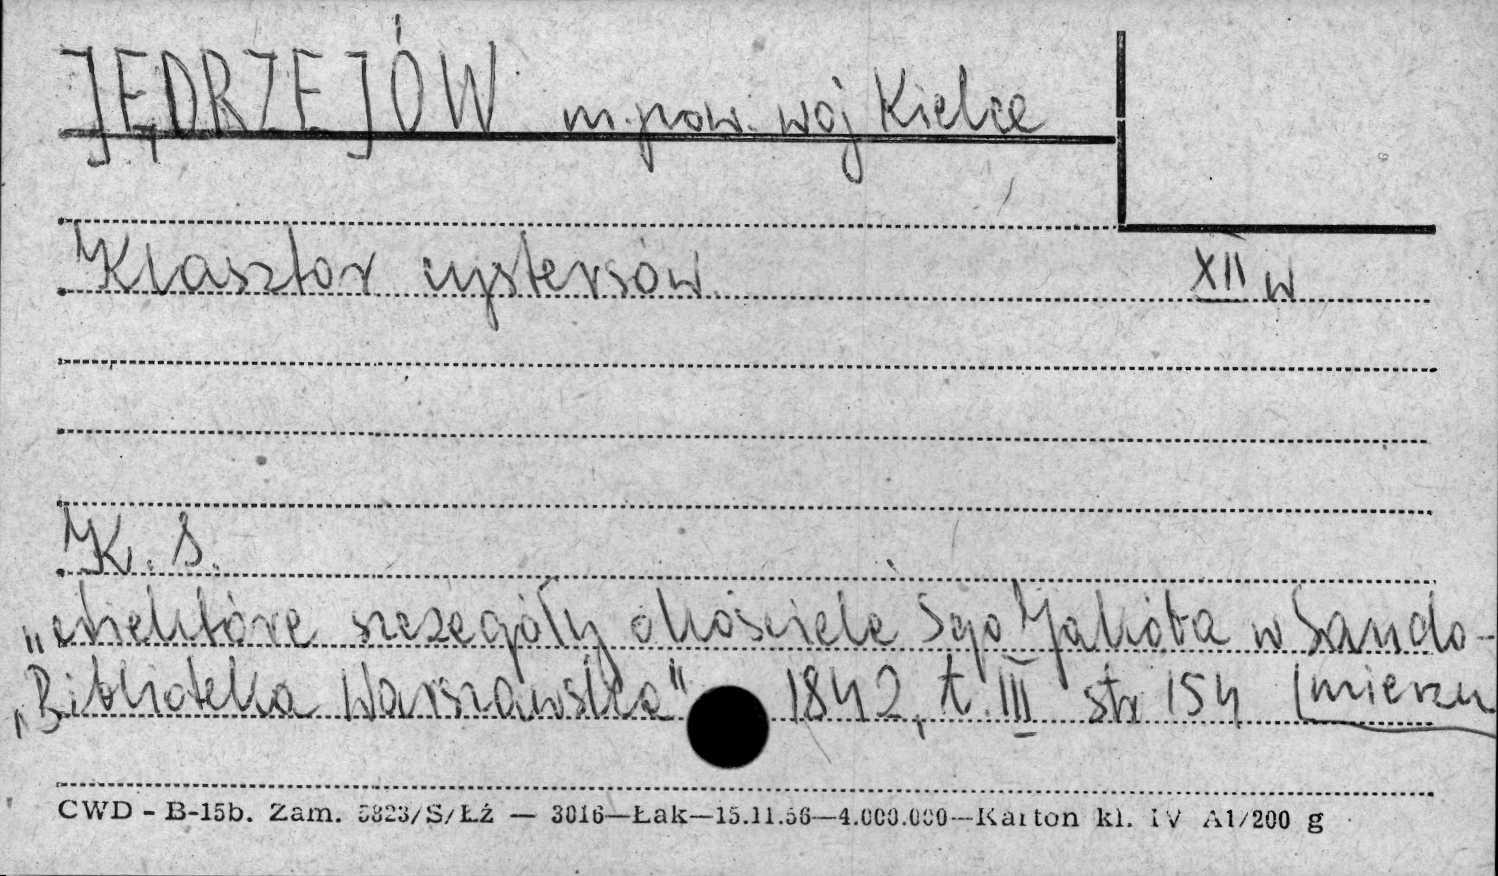 JĘDRZEJÓW m. pow. woj Kielce
Klasztor cystersów XII w
K. S.
„Niektóre szczegóły o kościele Sgo Jakóba w Sando-
„Biblioteka Warszawska" 1842, t. III str 154 (mierzu
CWD - B-15b. Zam. 5823/S/Łź — 3016—Łak—15.11.56—4.000.000—Karton kl. IV A1/200 g